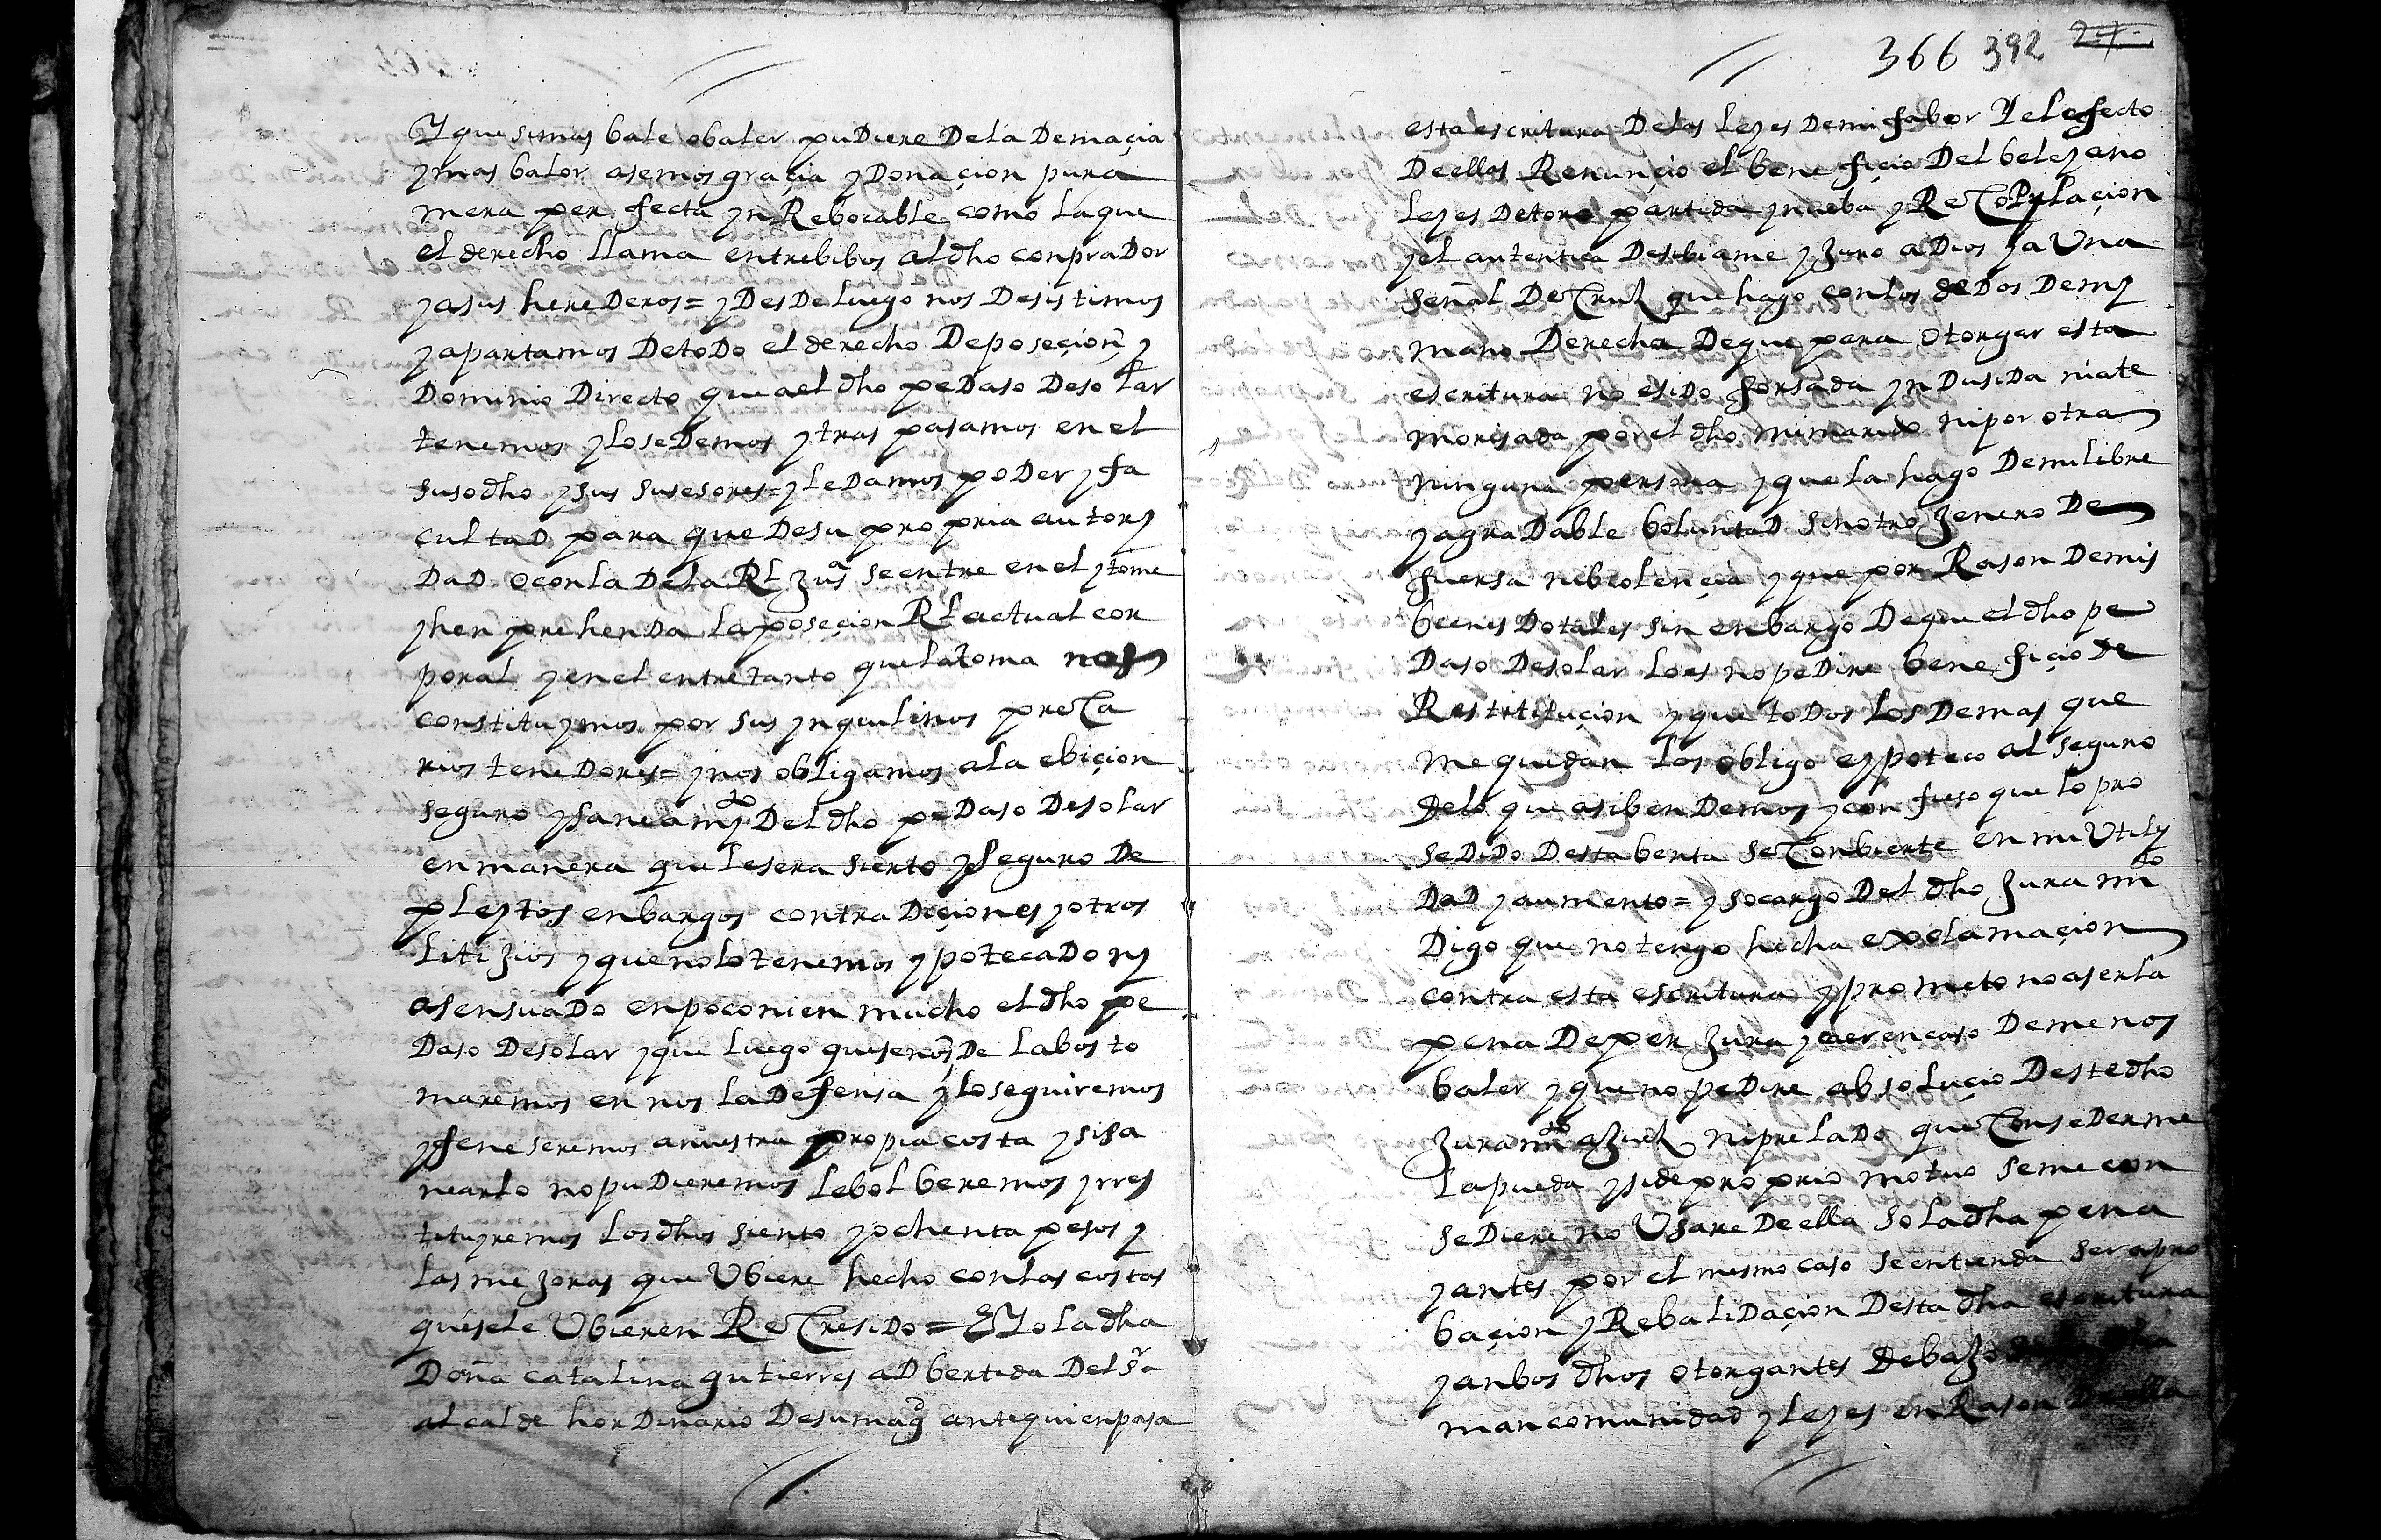 Y que si mas bale o baler pudiere De la Demaçia
y mas balor asemos graçia y Donaçion pura
mera perfecta yn Rebocable como la que
el derecho llama entrebibos al dho conprador
y a sus herederos = y Des De luego nos Desistimos
y apartamos De todo el derecho De poseçion y
Dominio Directo que a el dho peDaso De solar
tenemos y lo seDemos y traspasamos en el
susodho y sus susesores = y le Damos poDer y fa
cultaD para que De su propria autory
DaD o con la De la Rl Jusa se entre en el y tome
y henprehenDa la poseçion Rl actual cor
poral y en el entretanto que la toma nos
constituymos por sus ynquilinos preca
rios teneDores = y nos obligamos a la ebiçion
seguro y saneamyto Del dho peDaso De solar
en manera que le sera sierto y seguro De
pleytos enbargos contraDiçiones y otros
litiJios y que no lo tenemos ypotecaDo ny
asensuaDo en poco ni en mucho el dho pe
Daso De solar y que luego que se nos De la bos to
maremos en nos la Defensa y lo seguiremos
y feneseremos a nuestra propia costa y si sa
nearlo no puDieremos le bolberemos y rres
tituyremos los dhos siento y ochenta pesos y
las meJoras que Ubiere hecho con las costas
que se le Ubieren ReCresiDo = E Yo la dha
Doña catalina gutierres aDbertida Del sr
alcalde horDinario De su magd ante quien pasa
366 392 27
esta escritura De las leyes De mi fabor Y el efecto
De ellas Renunçio el benefiçio Del beleyano
leyes De toro partida y nueba y ReCopylaçion
y el autentica Desibiame y Juro a Dios y a Una
señal De Cruz que hago con los deDos De my
mano Derecha De que para otorgar esta
escritura no e siDo forsada ynDusiDa ni ate
morisada por el dho mi marido ni por otra
ninguna persona y que la hago De mi libre
y agraDable boluntaD sin otro Jenero De
fuersa ni biolençia y que por Rason De mis
bienes Dotales sin enbargo De que el dho pe
Daso De solar lo es no peDire benefiçio de
Restituçion y que toDos los Demas que
me quedan los obligo e ypoteco al seguro
De lo que asi benDemos y confieso que lo pro
seDiDo Desta benta se Conbierte en mi Utily
DaD y aumento = y so cargo Del dho Juramto
Digo que no tengo hecha exclamaçion
contra esta escritura y prometo no aserla
pena De perJura y caer en caso De menos
baler y que no peDire absoluçio Deste dho
Juramto a Juez ni prelaDo que ConseDerme
la pueda y si de proprio motuo se me con
seDiere no Usare De ella so la dha pena
y antes por el mesmo caso se entienda ser apro
baçion y RebaliDaçion Desta dha escritura
y anbos dhos otorgantes debaJo de la dha
mancomunidad y leyes en Rason De ella